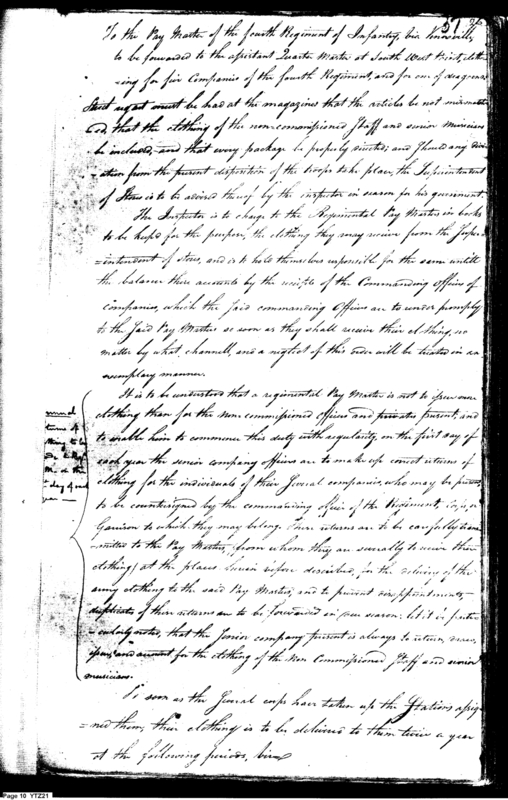 51 26
To the Pay Master of the fourth Regiment of Infantry, via Knoxville,
to be forwarded to the assistant Quarter Master at South West Point, cloth-
=ing for five Companies of the fourth Regiment, and for one of dragoons.
Strict regard must be had at the magazines that the articles be not mismatch
ed, that the clothing of the non-commissioned Staff and senior Musicians
be included, and that every package be properly invoiced; and should any devi
=ation from the present disposition of the troops take place, the Superintendent
of Stores is to be advised thereof by the inspector in season for his government.
The Inspector is to charge to the Regimental Pay Masters in books
to be kept for the purpose, the clothing they may receive from the Super
=intendent of stores, and is to hold themselves responsible for the same untill
the balance there accounts by the receipts of the Commanding Officers of
companies, which the said commanding Officers are to render promptly
to the said Pay Masters so soon as they shall receive their clothing, no
matter by what channell, and a neglect of this order will be treated in an
exemplary manner.
It is to be understood that a regimental Pay Master is not to issue more
clothing than for the non commissioned officers and privates present; and
to enable him to commence this duty with regularity, on the first day of
each year the senior company officers are to make up correct returns of
clothing for the individuals of their several companies, who may be present
to be countersigned by the commanding officer of the Regiment, Corps, or
Garrison to which they may belong. These returns are to be carefully trans
=mitted to the Pay Masters, from whom they are severally to receive their
clothing, at the places herein before described, for the delivery of the
army clothing to the said Pay Masters; and to prevent disappointments
duplicates of these returns are to be forwarded in due season. Let it be partic
=ularly noted, that the Senior company present is always to return, receive,
issue, and account for the clothing of the Non Commissioned Staff and senior
musicians.
annual
returns of
clothing to be
made to Pay
Mr. on the
1st day of each
year
So soon as the several corps have taken up the Stations assig
=ned them, their clothing is to be delivered to them twice a year
at the following periods, viz
Page 10 YTZ21